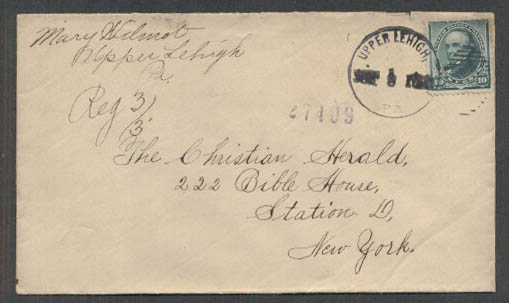 Mary Wilmot
Upper Lehigh
Pa.
UPPER LEHIGH,
PA.
10
Reg 3/
3.
27109
The Christian Herald,
222 Bible House,
Station D,
New York.